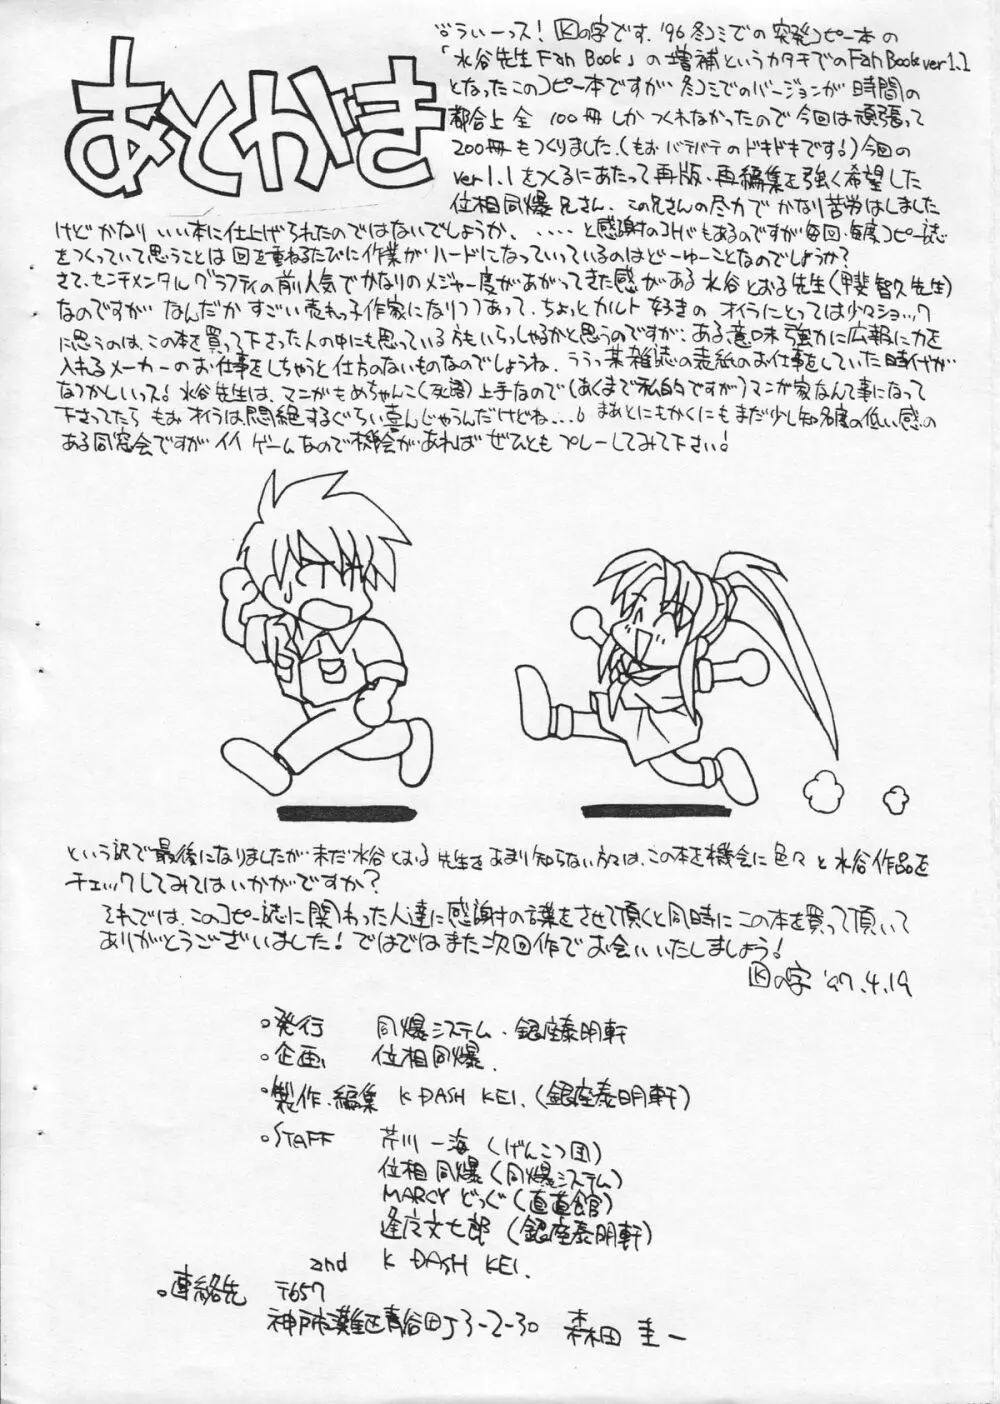 あとがき
うぃーっス! Kの字です. '96冬コミでの突発コピー本の
「水谷先生 Fan Book」の増補というカタチでのFan Book ver 1.1
となったこのコピー本ですが冬コミでのバージョンが時間の
都合上全 100冊しかつくれなかったので今回は頑張って
200冊もつくりました.(もおバテバテのドキドキです!)今回の
ver 1.1をつくるにあたって再版・再編集を強く希望した
位相同爆兄さん. この兄さんの尽力でかなり苦労はしました
けどかなりいい本に仕上げられたのではないでしょうか. ‥‥と感謝のコトバもあるのですが毎回・毎度コピー誌
をつくっていて思うことは回を重ねるたびに作業がハードになっていっているのはどーゆーことなのでしょうか?
さて、センチメンタルグラフティの前人気でかなりのメジャー度があがってきた感がある水谷とおる先生(甲斐智久先生)
なのですがなんだかすごい売れっ子作家になりつつあって、ちょっとカルト好きのオイラにとっては少々ショック
に思うのは、この本を買って下さった人の中にも思っている方もいらっしゃるかと思うのですが、ある意味強力に広報に力を
入れるメーカーのお仕事をしちゃうと仕方のないものなのでしょうね. ううっ某雑誌の表紙のお仕事をしていた時代が
なつかしいっス! 水谷先生は、マンガもめちゃんこ(死語)上手なので(あくまで私的ですが)マンガ家なんて事になって
下さってたらもおオイラは悶絶するぐらい喜んじゃうんだけどね...。まあとにもかくにもまだ少し知名度の低い感の
ある同窓会ですがイイゲームなので機会があればぜひともプレーしてみて下さい!
という訳で最後になりましたが未だ水谷とおる先生をあまり知らない方々は、この本を機会に色々と水谷作品を
チェックしてみてはいかがですか?
それでは、このコピー誌に関わった人達に感謝の言葉をさせて頂くと同時にこの本を買って頂いて
ありがとうございました! ではではまた次回作でお会いいたしましょう!
Kの字 '97.4.19
○発行 同爆システム・銀座泰明軒
○企画 位相同爆.
○製作・編集 K DASH KEI.(銀座泰明軒)
○STAFF 芹川一海(げんこつ団)
位相同爆(同爆システム)
MARCYどっぐ(直直館)
逢広文七郎(銀座泰明軒)
and K DASH KEI.
○連絡先 〒657
神戸市灘区青谷町3-2-30 森田圭一